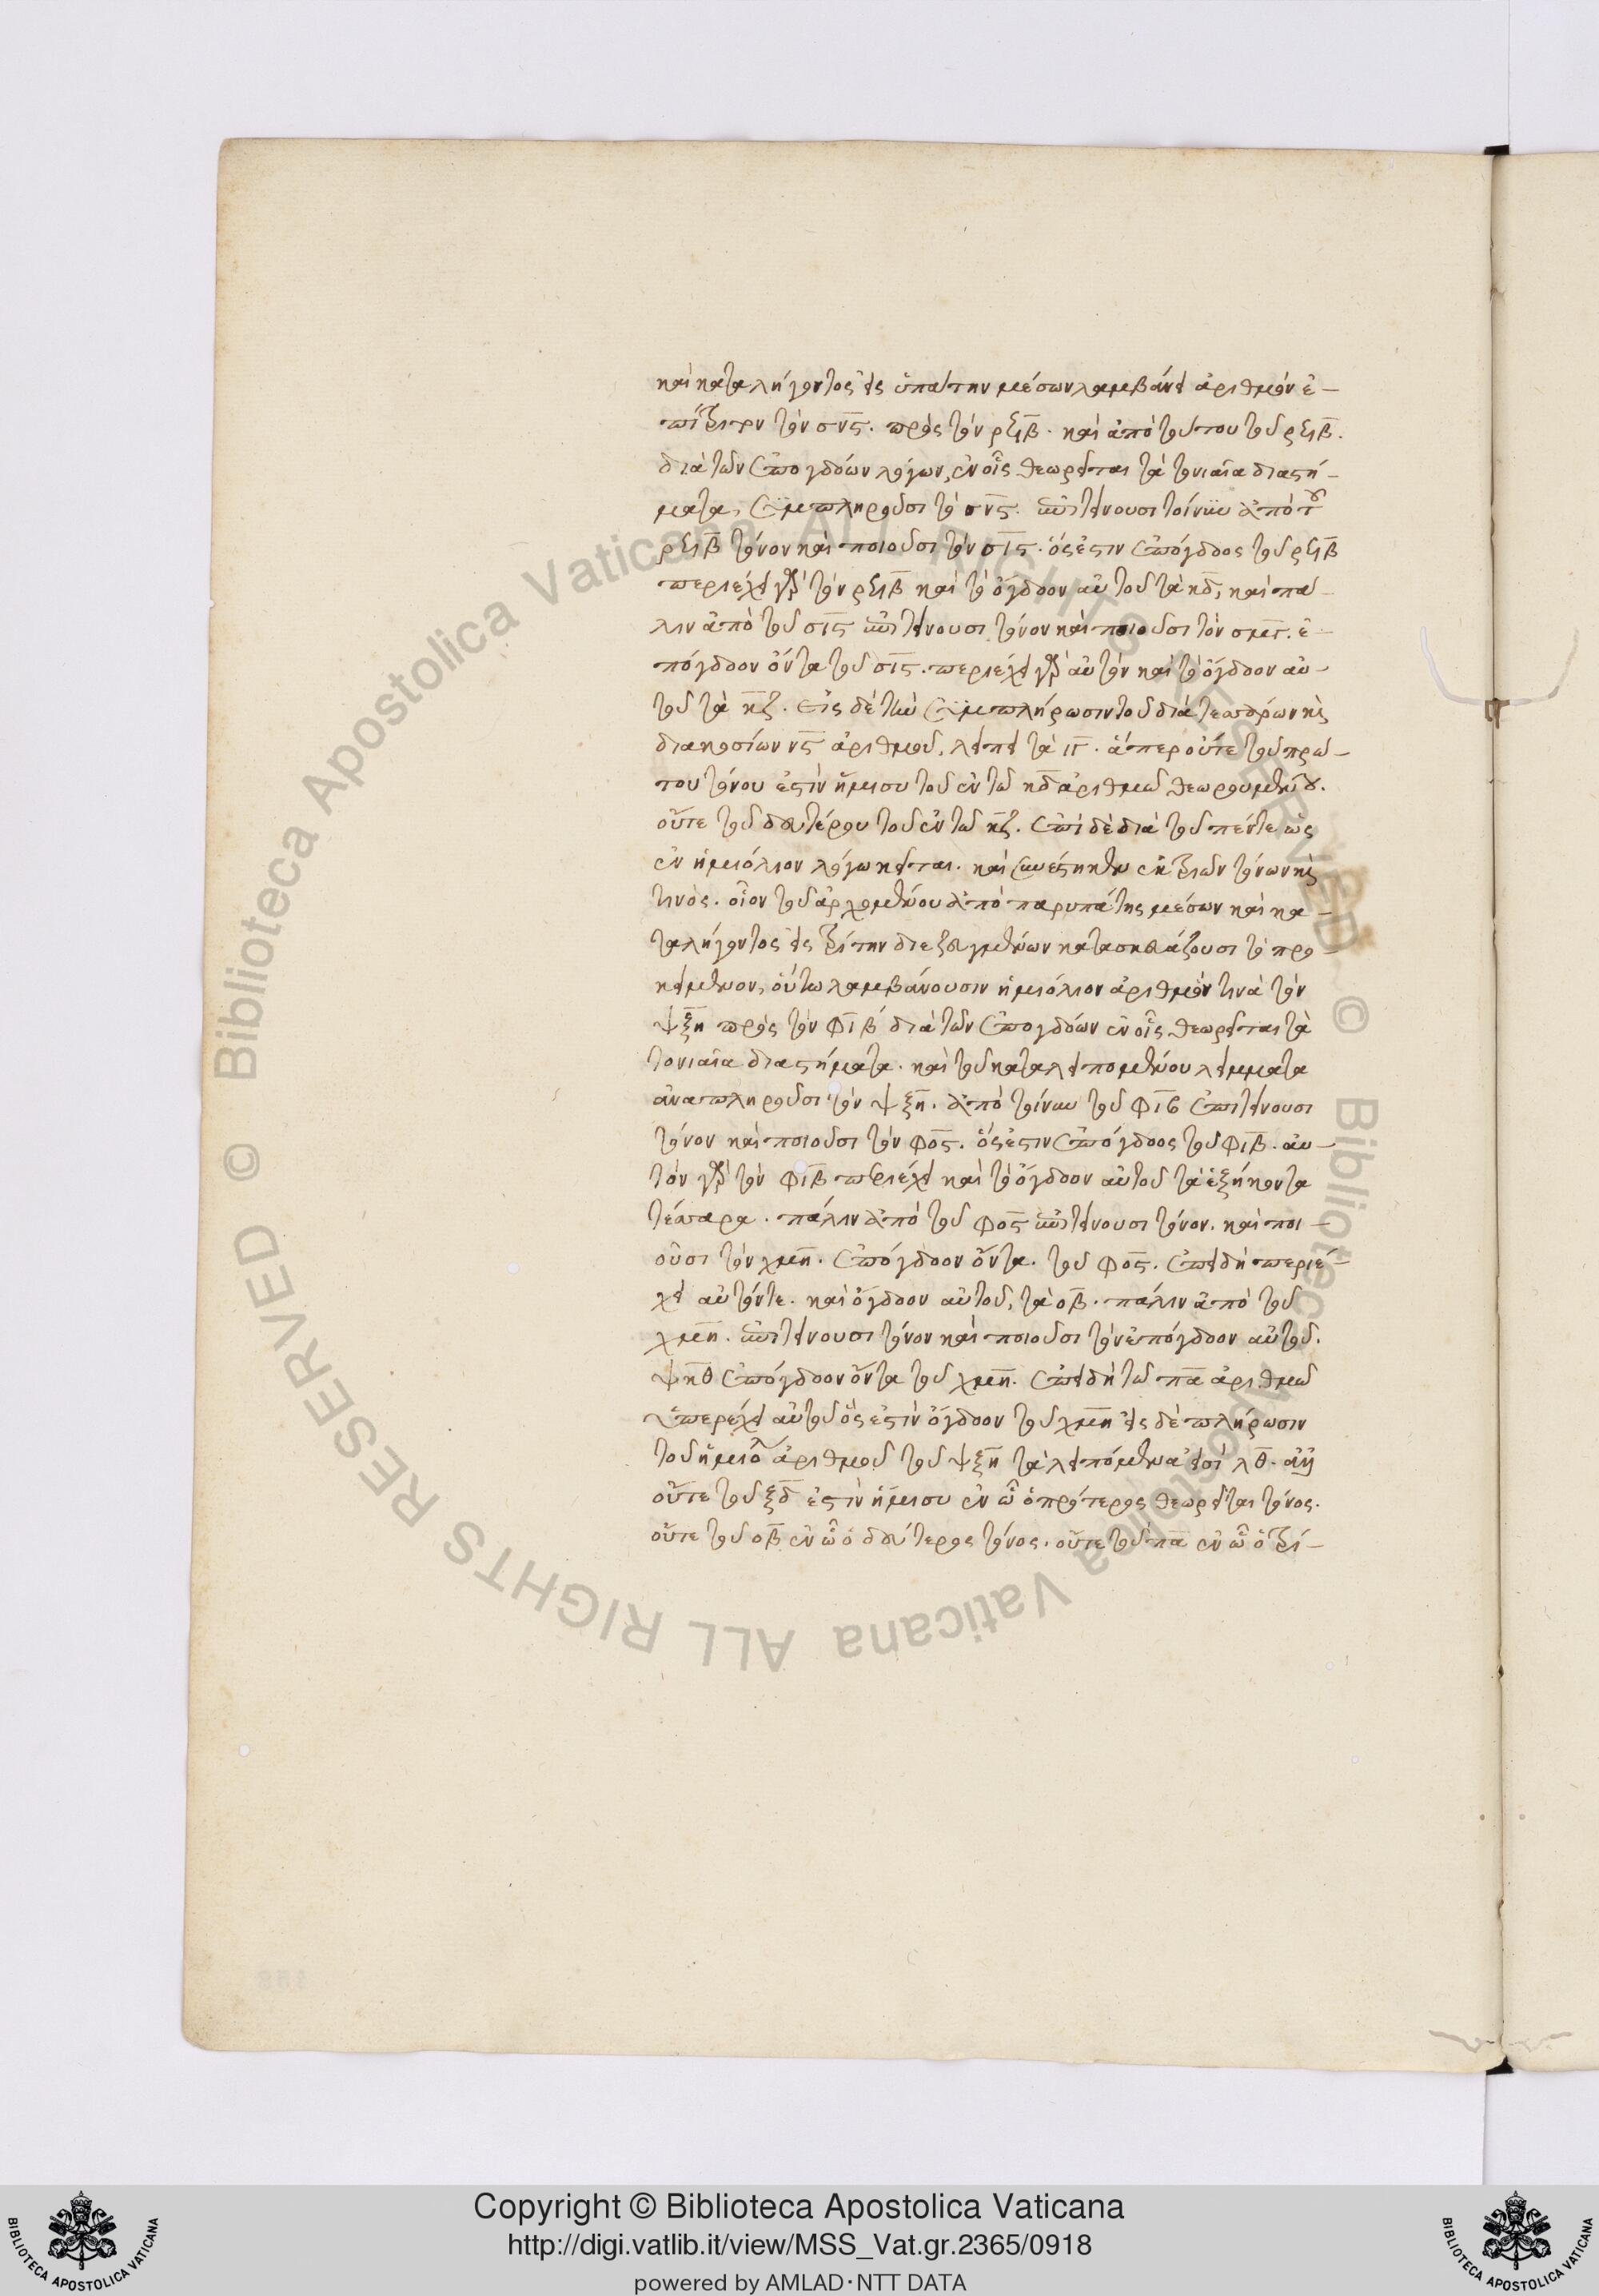 καὶ καταλήγοντος εἰς ὑπάτην μέσων λαμβάνει ἀριθμὸν ἐ-
πίτριτον τὸν σνϛ. πρὸς τὸν ρϟβ. καὶ ἀπὸ τούτου τοῦ ρϟβ.
διὰ τῶν ἐπογδόων λόγων, ἐν οἷς θεωρεῖται τὰ τονιαῖα διαστή-
ματα, συμπληροῦσι τὸ σνϛ. ἐπιτείνουσι τοίνυν ἀπὸ τοῦ
ρϟβ τόνον καὶ ποιοῦσι τὸν σιϛ. ὅς ἐστιν ἐπόγδοος τοῦ ρϟβ
περιέχει γὰρ τὸν ρϟβ καὶ τὸ ὄγδοον αὐτοῦ τὰ κδ, καὶ πά-
λιν ἀπὸ τοῦ σιϛ ἐπιτείνουσι τόνον καὶ ποιοῦσι τὸν σμγ. ἐ-
πόγδοον ὄντα τοῦ σιϛ. περιέχει γὰρ αὐτὸν καὶ τὸ ὄγδοον αὐ-
τοῦ τὰ κζ. εἰς δὲ τὴν συμπλήρωσιν τοῦ διὰ τεσσάρων καὶ
διακοσίων νϛ ἀριθμοῦ, λείπει τὰ ιγ. ἅπερ οὔτε τοῦ πρώ-
του τόνου ἐστὶν ἥμισυ τοῦ ἐν τῷ κδ ἀριθμῷ θεωρουμένου.
οὔτε τοῦ δευτέρου τοῦ ἐν τῷ κζ. ἐπὶ δὲ διὰ τοῦ πέντε ὡς
ἐν ἡμιόλιον λόγω κεῖται. καὶ συνέστηκεν ἐκ τριῶν τόνων καὶ
τινὸς. οἷον τοῦ ἀρχομένου ἀπὸ παρυπάτης μέσων καὶ κα-
ταλήγοντος εἰς τρίτην διεζευγμένων κατασκευάζουσι τὸ προ-
κείμενον, οὕτω λαμβάνουσιν ἡμιόλιον ἀριθμόν τινὰ τὸν
ψξη πρὸς τὸν φιβ διὰ τῶν ἐπογδόων ἐν οἷς θεωρεῖται τὰ
τονιαῖα διαστήματα. καὶ τοῦ καταλειπομένου λείμματα
ἀναπληροῦσι τὸν ψξη. ἀπὸ τοίνυν τοῦ φιβ ἐπιτείνουσι
τόνον καὶ ποιοῦσι τὸν φοϛ. ὅς ἐστιν ἐπόγδοος τοῦ φιβ. αὐ-
τὸν γὰρ τὸν φιβ περιέχει καὶ τὸ ὄγδοον αὐτοῦ τὰ ἑξήκοντα
τέσσαρα. πάλιν ἀπὸ τοῦ φοϛ ἐπιτείνουσι τόνον. καὶ ποι-
οῦσι τὸν χμη. ἐπόγδοον ὄντα. τοῦ φοϛ. ἐπειδὴ περιέ-
χει αὐτόν τε. καὶ ὄγδοον αὐτοῦ, τὰ οβ. πάλιν ἀπὸ τοῦ
χμη. ἐπιτείνουσι τόνον καὶ ποιοῦσι τὸν ἐπόγδοον αὐτοῦ.
ψκθ ἐπόγδοον ὄντα τοῦ χμη. ἐπειδὴ τῷ πα ἀριθμῷ
ὑπερέχει αὐτοῦ ὅς ἐστὶν ὄγδοον τοῦ χμη εἰς δὲ πλήρωσιν
τοῦ ἡμιολ ἀριθμοῦ τοῦ ψξη τὰ λειπόμενα εἰσὶ λθ.
οὔτε τοῦ ξδ ἐστὶν ἥμισυ ἐν ᾧ ὁ πρότερος θεωρεῖται τόνος.
οὔτε τοῦ οβ ἐν ᾧ ὁ δεύτερος τόνος. οὔτε τοῦ πα ἐν ᾧ ὁ τρί-
Copyright © Biblioteca Apostolica Vaticana
http://digi.vatlib.it/view/MSS_Vat.gr.2365/0918
powered by AMLAD·NTT DATA